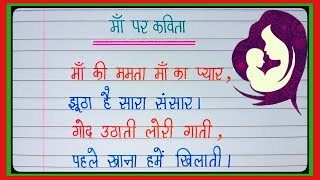 माँ पर कविता
माँ की ममता माँ का प्यार,
झूठा है सारा संसार।
गोद उठाती लोरी गाती,
पहले खाना हमें खिलाती।